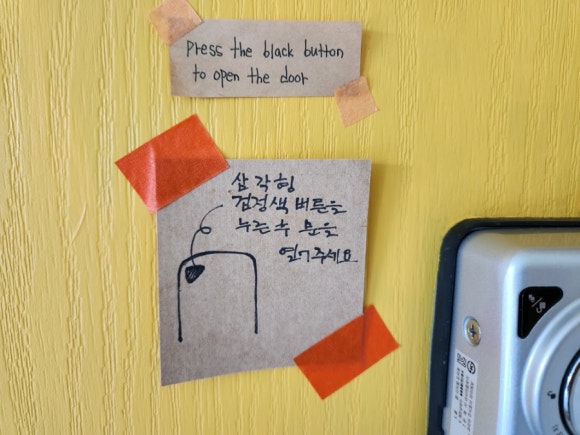 Press the black button
to open the door
삼각형
검정색 버튼을
누른 후 문을
열어주세요